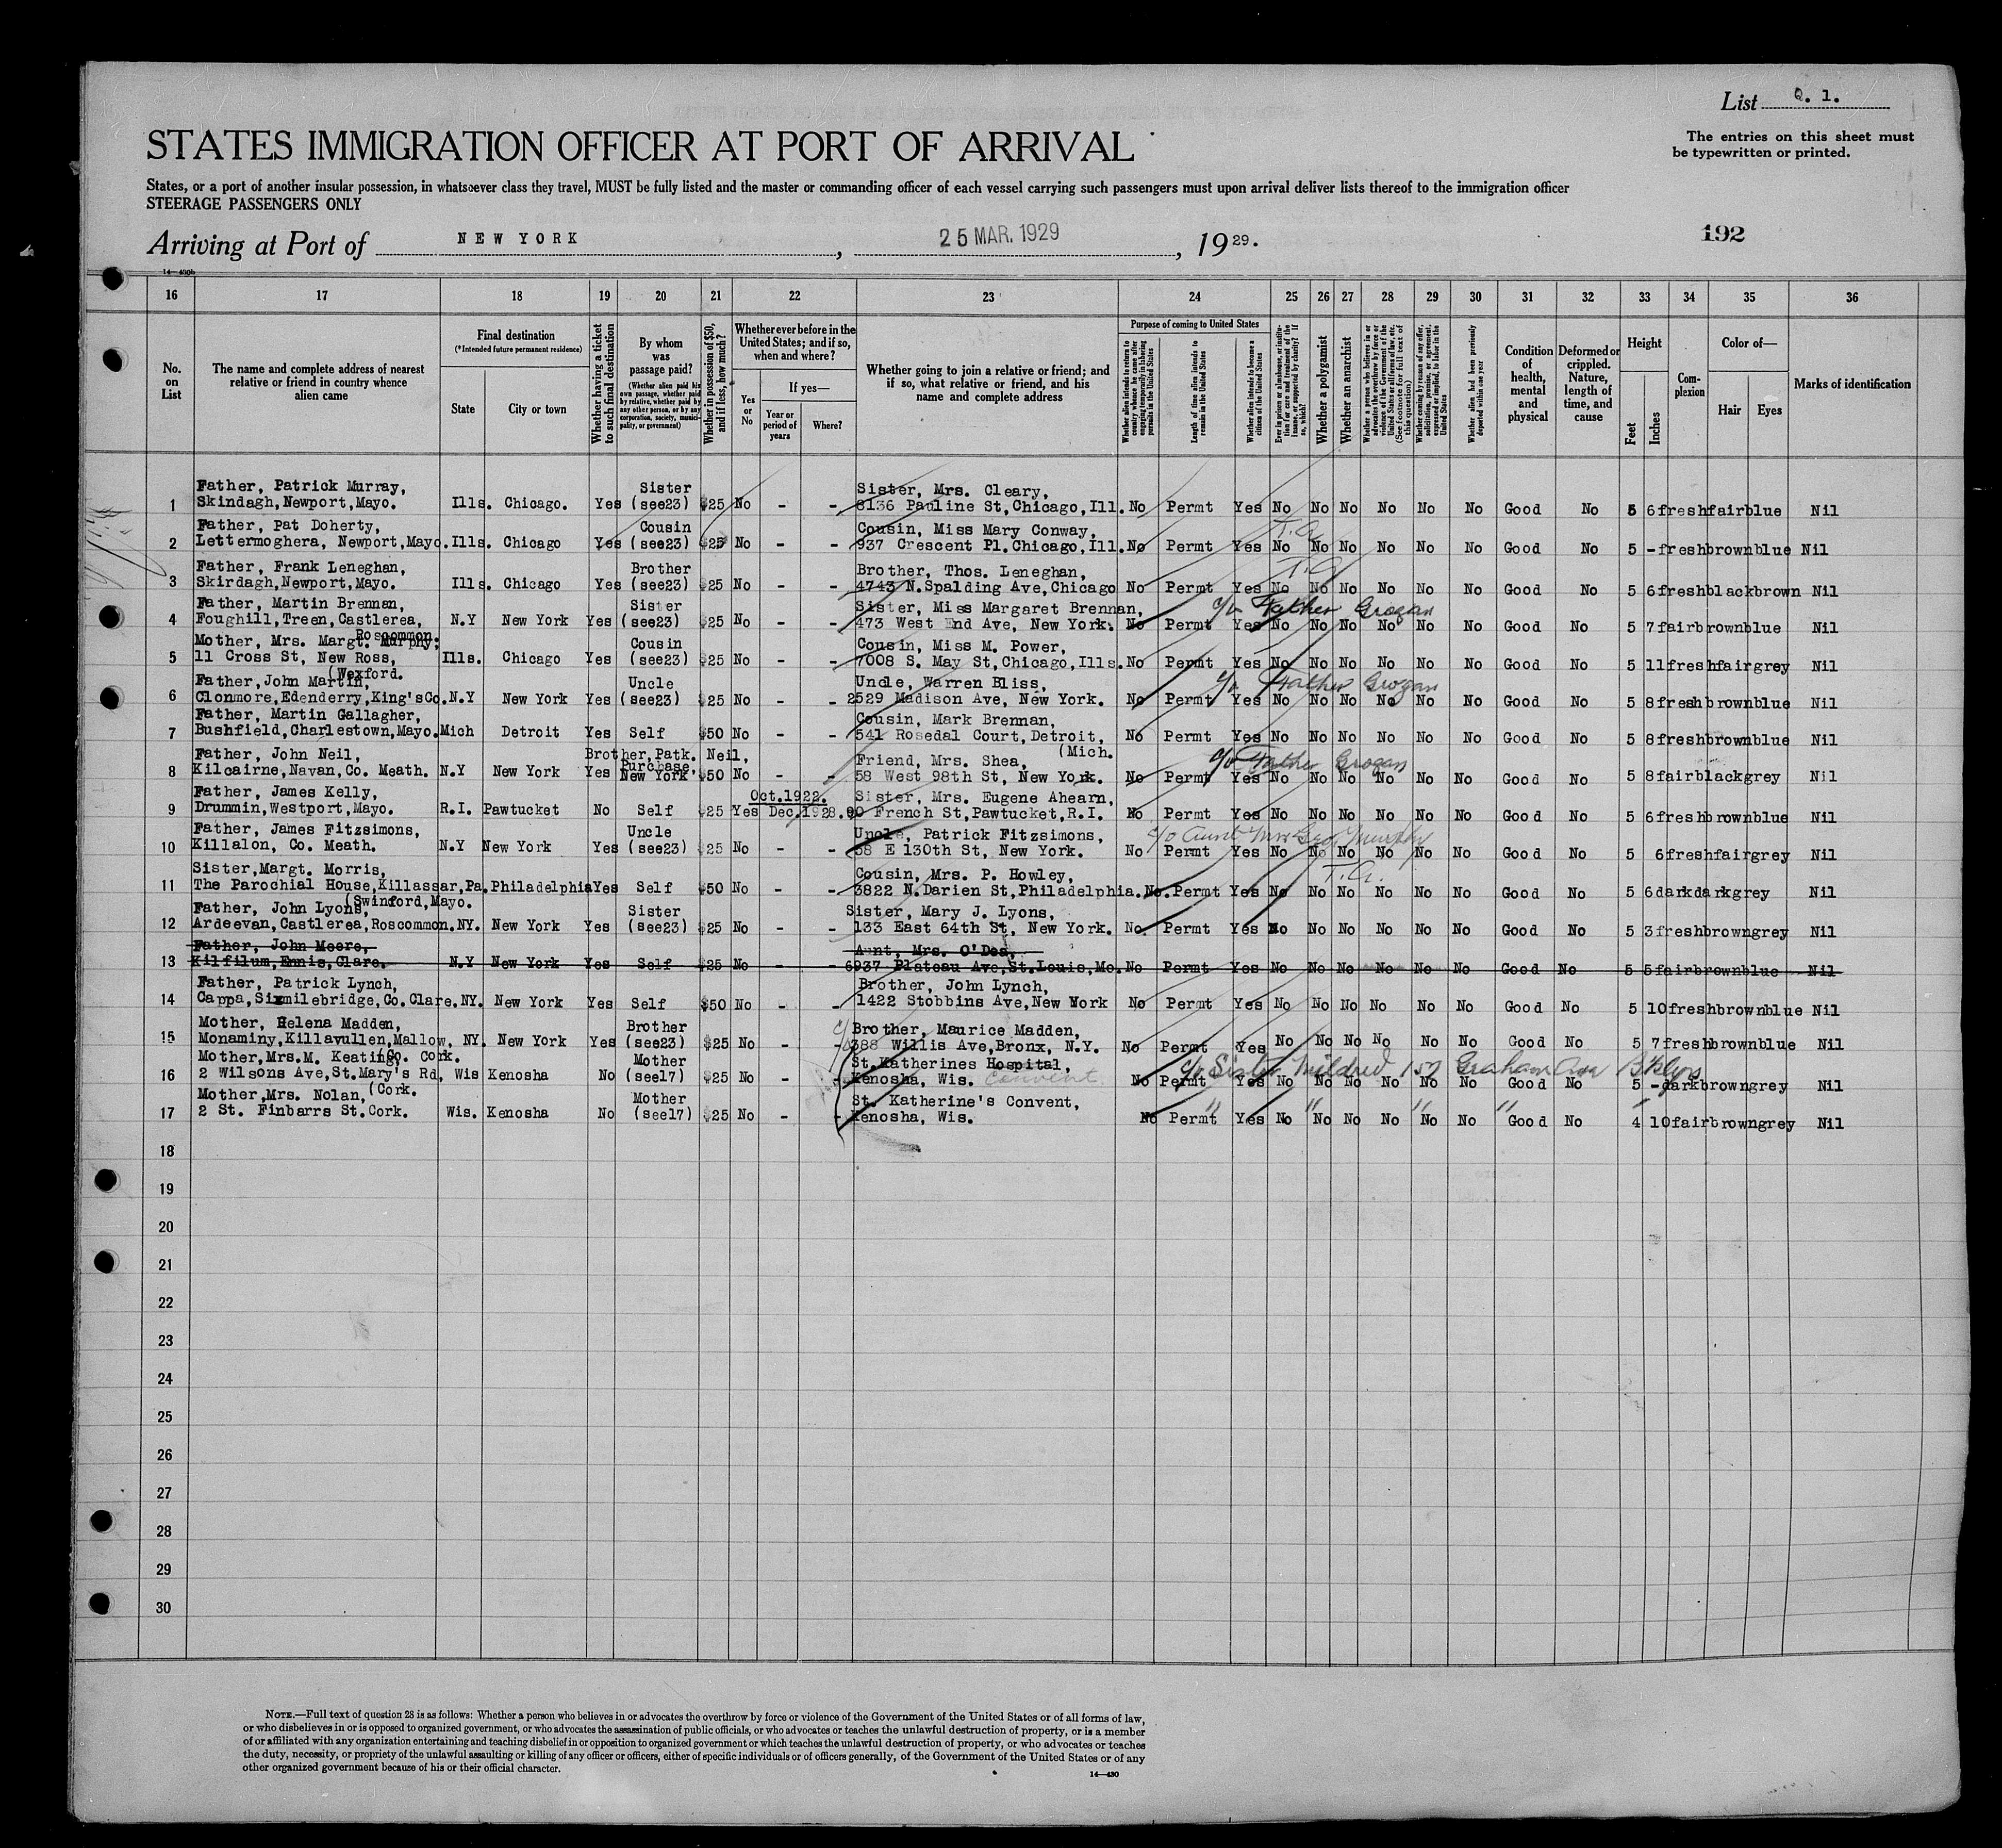 List Q. 1.
The entries on this sheet must
be typewritten or printed.
STATES IMMIGRATION OFFICER AT PORT OF ARRIVAL
States, or a port of another insular possession, in whatsoever class they travel, MUST be fully listed and the master or commanding officer of each vessel carrying such passengers must upon arrival deliver lists thereof to the immigration officer
STEERAGE PASSENGERS ONLY
Arriving at Port of NEW YORK, 25 MAR. 1929, 1929.
192
14—430b
16 17 18 19 20 21 22 23 24 25 26 27 28 29 30 31 32 33 34 35 36
No. on List
The name and complete address of nearest relative or friend in country whence alien came
Final destination
(*Intended future permanent residence)
State
City or town
Whether having a ticket to such final destination
By whom was passage paid?
(Whether alien paid his own passage, whether paid by relative, whether paid by any other person, or by any corporation, society, municipality, or government)
Whether in possession of $50, and if less, how much?
Whether ever before in the United States; and if so, when and where?
Yes or No
If yes—
Year or period of years
Where?
Whether going to join a relative or friend; and if so, what relative or friend, and his name and complete address
Purpose of coming to United States
Whether alien intends to return to country whence he came after engaging temporarily in laboring pursuits in the United States
Length of time alien intends to remain in the United States
Whether alien intends to become a citizen of the United States
Ever in prison or almshouse, or institution for care and treatment of the insane, or supported by charity? If so, which?
Whether a polygamist
Whether an anarchist
Whether a person who believes in or advocates the overthrow by force or violence of the Government of the United States or of all forms of law, etc. (See footnote for full text of this question)
Whether coming by reason of any offer, solicitation, promise, or agreement, expressed or implied, to labor in the United States
Whether alien had been previously deported within one year
Condition of health, mental and physical
Deformed or crippled. Nature, length of time, and cause
Height
Feet
Inches
Complexion
Color of—
Hair
Eyes
Marks of identification
Father, Patrick Murray, Sister Sister, Mrs. Cleary,
1 Skindagh,Newport,Mayo. Ills. Chicago. Yes (see23) $25 No - - 8136 Pauline St,Chicago,Ill. No Permt Yes No No No No No No Good No 5 6 fresh fair blue Nil
Father, Pat Doherty, Cousin Cousin, Miss Mary Conway, T.A.
2 Lettermoghera, Newport,Mayo. Ills. Chicago Yes (see23) $25 No - - 937 Crescent Pl.Chicago,Ill. No Permt Yes No No No No No No Good No 5 - fresh brown blue Nil
Father, Frank Leneghan, Brother Brother, Thos. Leneghan, T.A.
3 Skirdagh,Newport,Mayo. Ills. Chicago Yes (see23) $25 No - - 4743 N.Spalding Ave,Chicago No Permt Yes No No No No No No Good No 5 6 fresh black brown Nil
Father, Martin Brennan, Sister Sister, Miss Margaret Brennan, c/o Father Grogan
4 Foughill,Treen,Castlerea, N.Y New York Yes (see23) $25 No - - 473 West End Ave, New York. No Permt Yes No No No No No No Good No 5 7 fair brown blue Nil
Roscommon.
Mother, Mrs. Margt. Murphy, Cousin Cousin, Miss M. Power,
5 11 Cross St, New Ross, Ills. Chicago Yes (see23) $25 No - - 7008 S. May St,Chicago,Ills. No Permt Yes No No No No No No Good No 5 11 fresh fair grey Nil
(Wexford.
Father,John Martin, Uncle Uncle, Warren Bliss, c/o Father Grogan
6 Clonmore,Edenderry,King'sCo. N.Y New York Yes (see23) $25 No - - 2529 Madison Ave, New York. No Permt Yes No No No No No No Good No 5 8 fresh brown blue Nil
Father, Martin Gallagher, Cousin, Mark Brennan,
7 Bushfield,Charlestown,Mayo. Mich Detroit Yes Self $50 No - - 541 Rosedal Court,Detroit, No Permt Yes No No No No No No Good No 5 8 fresh brown blue Nil
(Mich.
Father, John Neil, Brother,Patk. Neil, Purchase, Friend, Mrs. Shea, c/o Father Grogan
8 Kilcairne,Navan,Co. Meath. N.Y New York Yes New York, $50 No - - 58 West 98th St, New York. No Permt Yes No No No No No No Good No 5 8 fair black grey Nil
Father, James Kelly, Oct.1922. Sister, Mrs. Eugene Ahearn,
9 Drummin,Westport,Mayo. R.I. Pawtucket No Self $25 Yes Dec.1928. 90 French St,Pawtucket,R.I. No Permt Yes No No No No No No Good No 5 6 fresh brown blue Nil
Father, James Fitzsimons, Uncle Uncle, Patrick Fitzsimons, c/o Aunt Mrs Geo Murphy
10 Killalon, Co. Meath. N.Y New York Yes (see23) $25 No - - 58 E 130th St, New York. No Permt Yes No No No No No No Good No 5 6 fresh fair grey Nil
Sister,Margt. Morris, Cousin, Mrs. P. Howley, T.A.
11 The Parochial House,Killassar, Pa. Philadelphia Yes Self $50 No - - 3822 N.Darien St,Philadelphia. No. Permt Yes No No No No No No Good No 5 6 dark dark grey Nil
(Swinford,Mayo.
Father, John Lyons, Sister Sister, Mary J. Lyons,
12 Ardeevan,Castlerea,Roscommon. NY. New York Yes (see23) $25 No - - 133 East 64th St, New York. No. Permt Yes No No No No No No Good No 5 3 fresh brown grey Nil
Father, John Meere, Aunt, Mrs. O'Dea,
13 Kilfilum,Ennis,Clare. N.Y New York Yes Self $25 No - - 6937 Plateau Ave,St.Louis,Mo. No Permt Yes No No No No No No Good No 5 5 fair brown blue Nil
Father, Patrick Lynch, Brother, John Lynch,
14 Cappa,Sixmilebridge,Co.Clare. NY. New York Yes Self $50 No - - 1422 Stobbins Ave,New York No Permt Yes No No No No No No Good No 5 10 fresh brown blue Nil
Mother, Helena Madden, Brother c/o Brother, Maurice Madden,
15 Monaminy,Killavullen,Mallow, NY. New York Yes (see23) $25 No - - 388 Willis Ave,Bronx, N.Y. No Permt Yes No No No No No No Good No 5 7 fresh brown blue Nil
(Co. Cork.
Mother,Mrs.M. Keating, Mother St.Katherines Hospital, c/o Sister Mildred 159 Graham Ave Bklyn
16 2 Wilsons Ave,St.Mary's Rd, Wis Kenosha No (see17) $25 No - - Kenosha, Wis. Convent No Permt Yes No No No No No No Good No 5 - dark brown grey Nil
(Cork.
Mother,Mrs. Nolan, Mother St. Katherine's Convent, " " " "
17 2 St. Finbarrs St.Cork. Wis. Kenosha No (see17) $25 No - - Kenosha, Wis. No Permt Yes No No No No No No Good No 4 10 fair brown grey Nil
18
19
20
21
22
23
24
25
26
27
28
29
30
NOTE.—Full text of question 28 is as follows: Whether a person who believes in or advocates the overthrow by force or violence of the Government of the United States or of all forms of law,
or who disbelieves in or is opposed to organized government, or who advocates the assassination of public officials, or who advocates or teaches the unlawful destruction of property, or is a member
of or affiliated with any organization entertaining and teaching disbelief in or opposition to organized government or which teaches the unlawful destruction of property, or who advocates or teaches
the duty, necessity, or propriety of the unlawful assaulting or killing of any officer or officers, either of specific individuals or of officers generally, of the Government of the United States or of any
other organized government because of his or their official character.
14—430